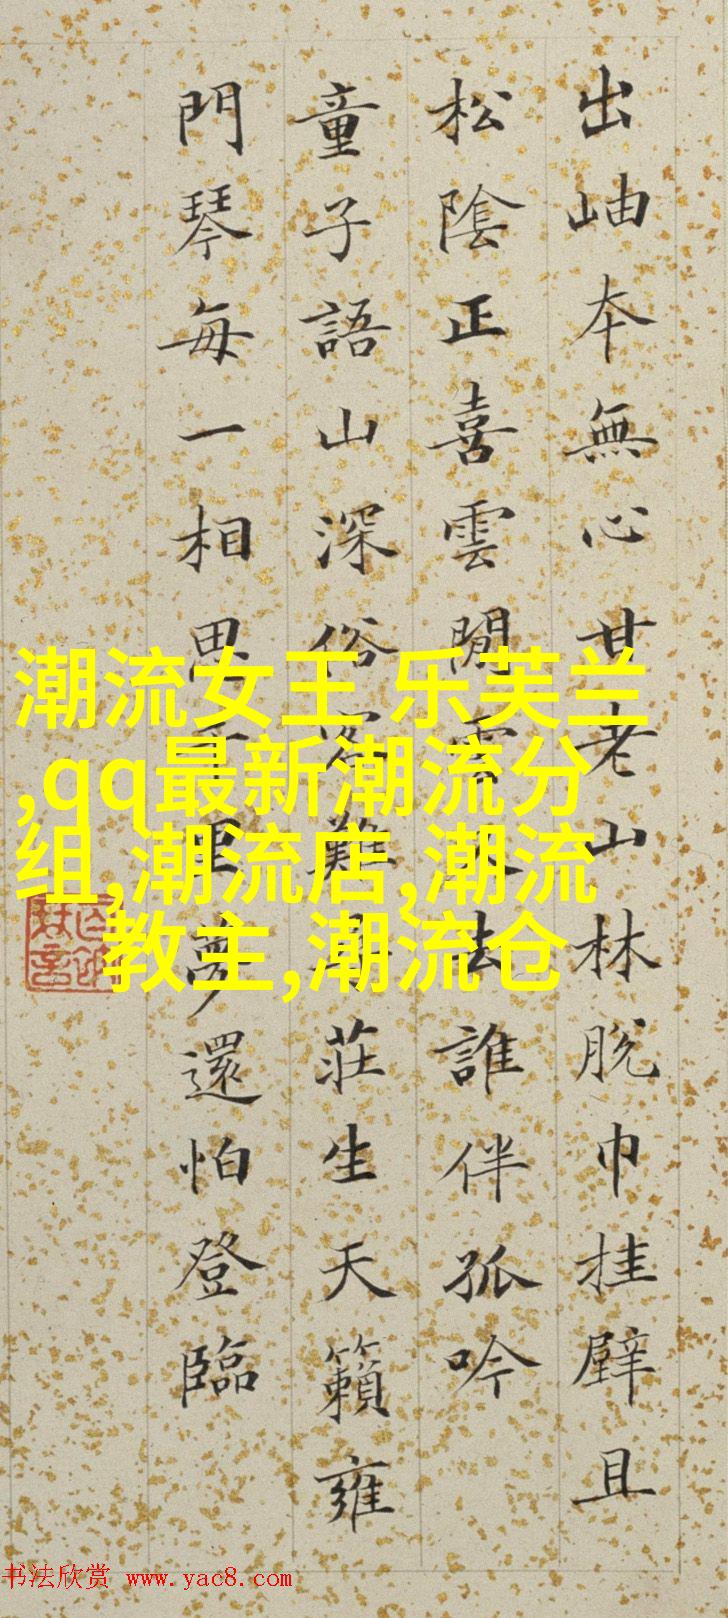 出岫本無心甘老山林脫巾挂壁且
松陰正喜雲閒雲又去誰伴孤吟
童子語山深俗客難尋莊生天籟雍
門琴每一相思千里夢還怕登臨
潮流女王 乐芙兰
,qq最新潮流分
组,潮流店,潮流
教主,潮流仓
书法欣赏 www.yac8.com